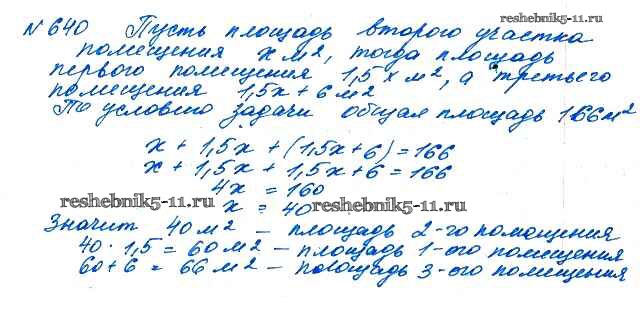 reshebnik5-11.ru
№ 640 Пусть площадь второго участка
помещения x м², тогда площадь
первого помещения 1,5x м², а третьего
помещения 1,5x + 6 м²
По условию задачи общая площадь 166 м²
x + 1,5x + (1,5x + 6) = 166
x + 1,5x + 1,5x + 6 = 166
4x = 160
x = 40
reshebnik5-11.ru reshebnik5-11.ru
Значит 40 м² – площадь 2-го помещения
40 · 1,5 = 60 м² – площадь 1-ого помещения
60 + 6 = 66 м² – площадь 3-ого помещения